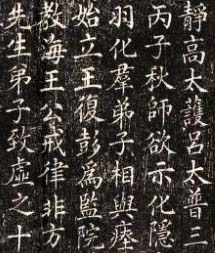 靜高太護呂太普三
丙子秋師欲示化隱
羽化羣弟子相與瘞
始立王復彭爲監院
教海王公戒律非方
先生弟子致虛之十